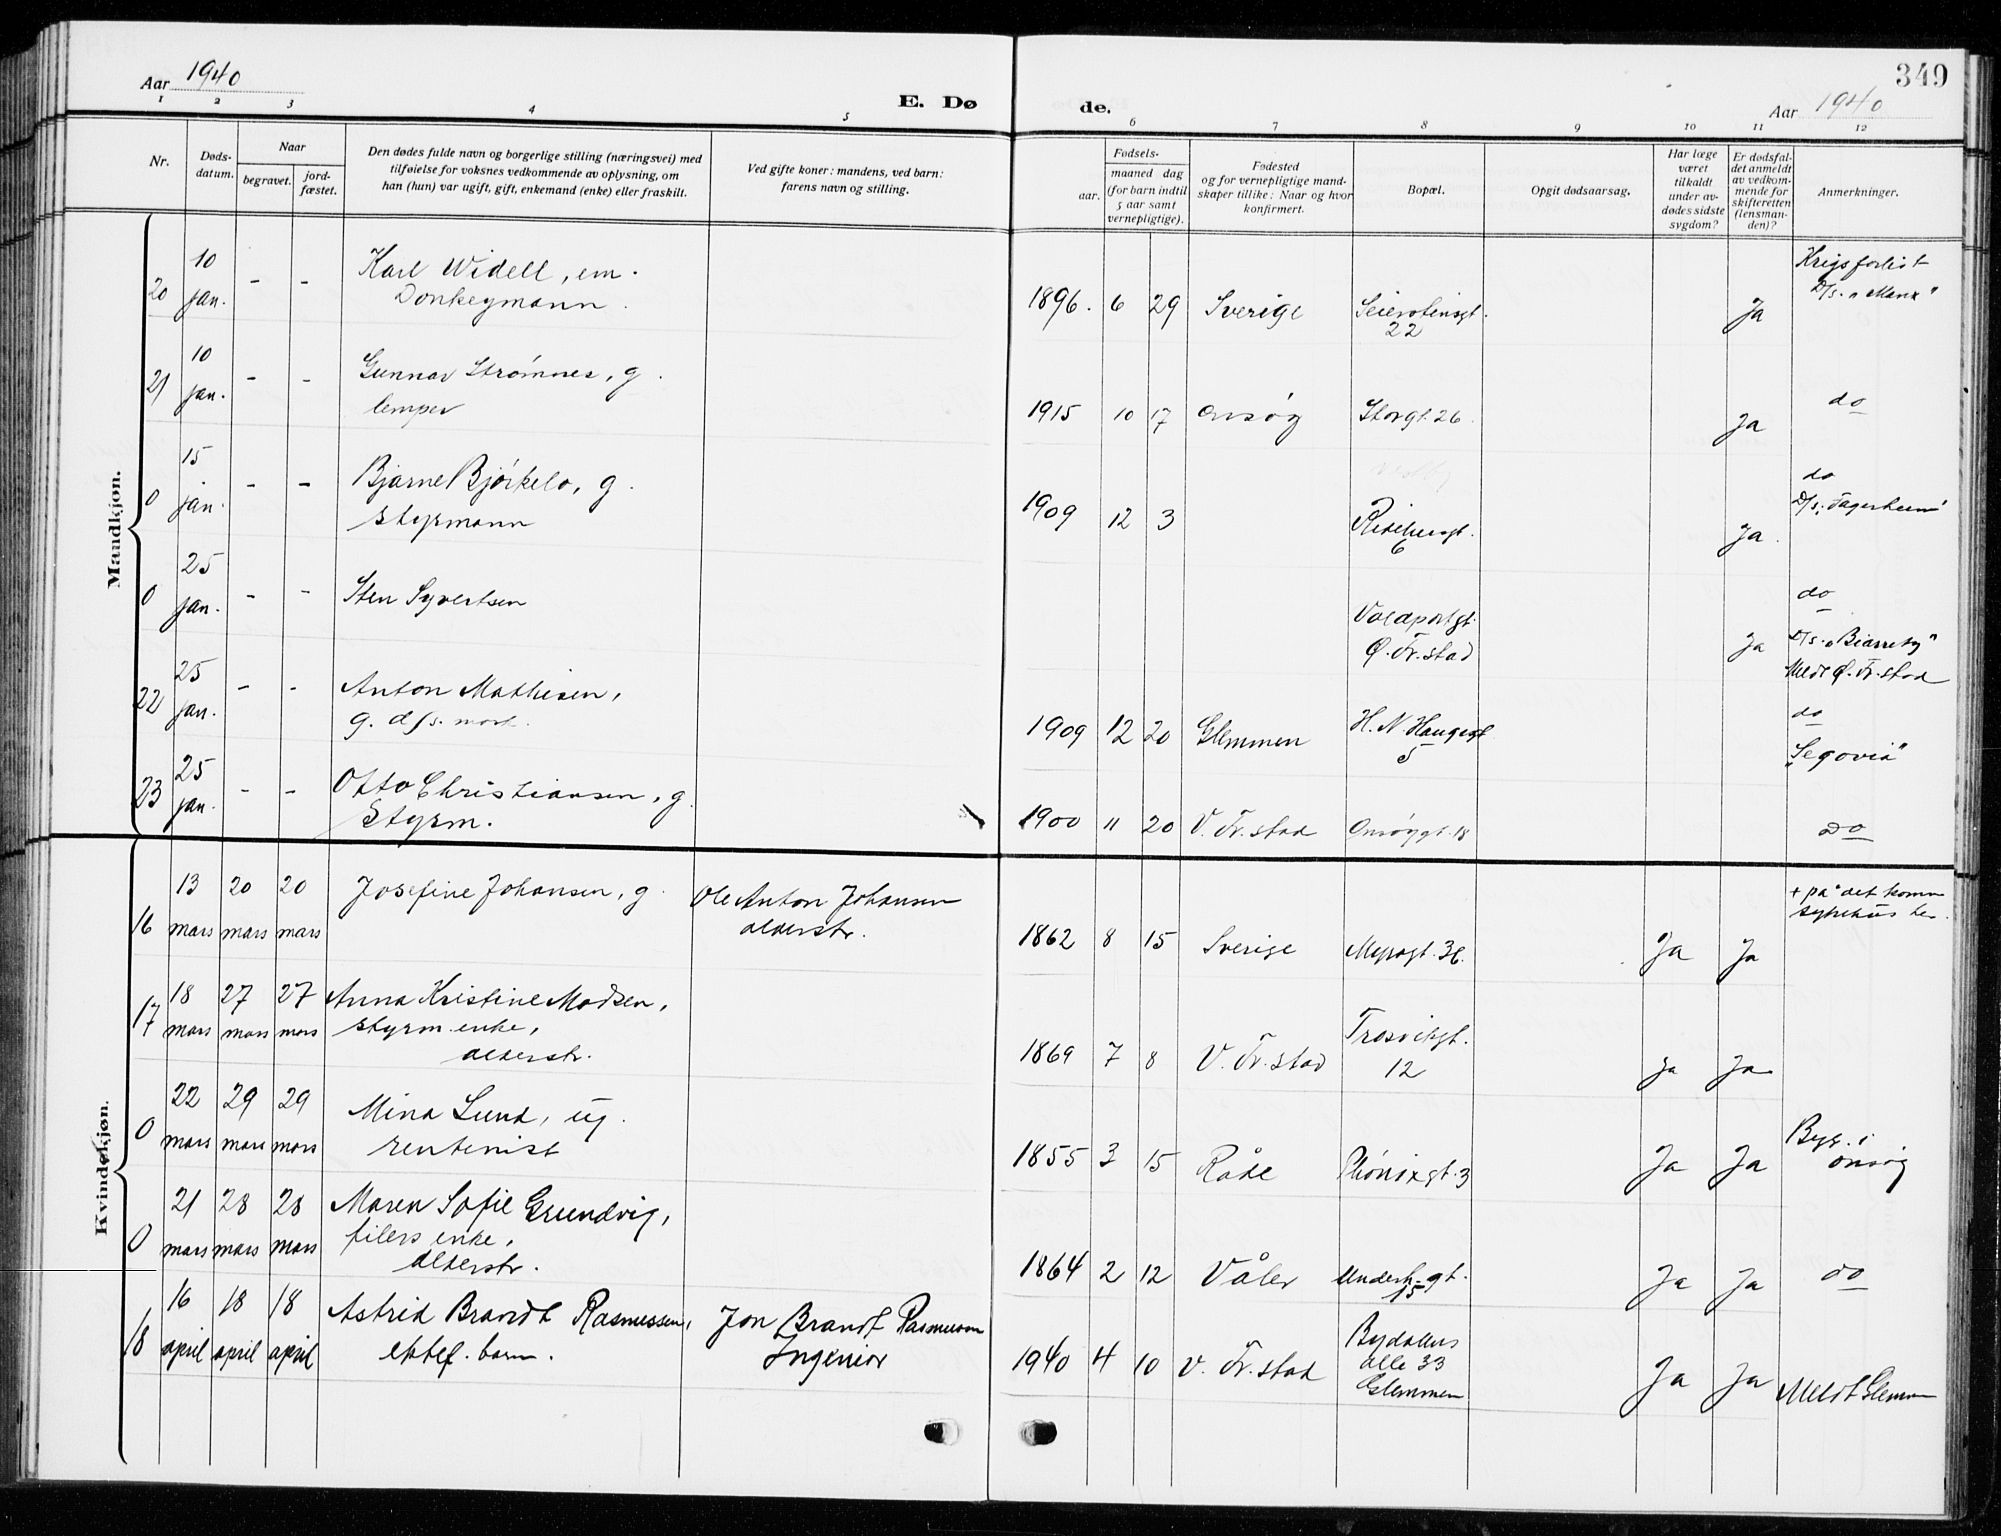 349
Aar 1940
E. Dø de.
Aar 1940
1 2 3 4 5 6 7 8 9 10 11 12
Nr.
Døds-
datum.
Naar
begravet.
jord-
fæstet.
Den dødes fulde navn og borgerlige stilling (næringsvei) med
tilføielse for voksnes vedkommende av oplysning, om
han (hun) var ugift, gift, enkemand (enke) eller fraskilt.
Ved gifte koner: mandens, ved barn:
farens navn og stilling.
Fødsels-
aar.
maaned dag
(for barn indtil
5 aar samt
vernepligtige).
Fødested
og for vernepligtige mand-
skaper tillike: Naar og hvor
konfirmert.
Bopæl.
Opgit dødsaarsag.
Har læge
været
tilkaldt
under av-
dødes sidste
sygdom?
Er dødsfal-
det anmeldt
av vedkom-
mende for
skifteretten
(lensman-
den)?
Anmerkninger.
Mandkjøn.
20 10 jan. - - Karl Widell, em.
Donkeymann.
1896. 6 29 Sverige Seierstensgt.
22
Ja
Krigsforlist
D/s. "Manx"
21 10 jan. - - Gunnar Strømnes, g.
lemper
1915 10 17 Onsøy Storgt. 26.
Ja
do
0 15 jan. - - Bjarne Bjørkelo, g.
styrmann
1909 12 3
6
Ja.
do
D/s. "Fagerheim"
0 25 jan. - - Sten Syvertsen
Voldportgt.
Ø. Fr.stad
Ja
do
D/s. "Biarritz"
Meldt Ø. Fr.stad
22 25 jan. - - Anton Mathisen,
g. d/s.
1909 12 20 Glemmen H. N. Haugesgt
5
do
"Segovia"
23 25 jan. - - Otto Christiansen, g.
Styrm.
1900 11 20 V. Fr.stad Onsøygt. 18
Do
Kvindekjøn.
16 13 mars 20 mars 20 mars Josefine Johansen, g. Ole Anton Johansen
alderstr.
1862 8 15 Sverige Myragt. 36.
Ja Ja
+ på det komm
sykehus her.
17 18 mars 27 mars 27 mars Anna Kristine Madsen,
styrm. enke,
alderstr.
1869 7 8 V. Fr.stad Trosvikgt.
12
Ja Ja
0 22 mars 29 mars 29 mars Mina Lund, ug.
rentenist
1855 3 15 Råde Phønixgt. 3
Ja Ja
Begr. i
Onsøy
0 21 mars 28 mars 28 mars Maren Sofie Grundvig,
filers enke,
alderstr.
1864 2 12 Våler Underh.gt.
15
Ja Ja
do
18 16 april 18 april 18 april Astrid Brandt Rasmussen,
ektef. barn.
Jon Brandt Rasmussen
Ingeniør
1940 4 10 V. Fr.stad Bydalens
alle 33
Glemmen
Ja Ja
Meldt Glemm